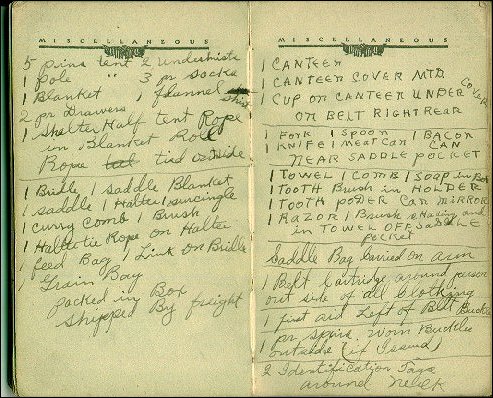 MISCELLANEOUS
5 pins tent 2 undershirts
1 Pole " 3 pr socks
1 Blanket 1 flannel shirt
2 pr Drawers
1 Shelter Half tent Rope
in Blanket Roll
Rope tied outside
1 Bridle 1 Saddle Blanket
1 saddle 1 Halter 1 surcingle
1 curry comb 1 Brush
1 Haltertie Rope on Halter
1 feed Bag 1 Link on Bridle
1 Grain Bag
packed in Box
shipped By freight
MISCELLANEOUS
1 CANTEEN
1 CANTEEN COVER MTD.
1 CUP ON CANTEEN UNDER COVER
ON BELT RIGHT REAR
1 FORK 1 SPOON 1 BACON
1 KNIFE 1 MEAT CAN CAN
NEAR SADDLE POCKET
1 TOWEL 1 COMB 1 SOAP in BOX
1 TOOTH Brush in HOLDER
1 TOOTH PODER CAN MIRROR
1 RAZOR 1 Brush shaving and
in TOWEL OFF SADDLE
pocket
Saddle Bag Carried on arm
1 Belt Cartridge around person
out side of all Clothing
1 first aid Left of Belt Buckle
1 pr spurs Worn Buckles
outside (if Issued)
2 Identification Tags
around neck